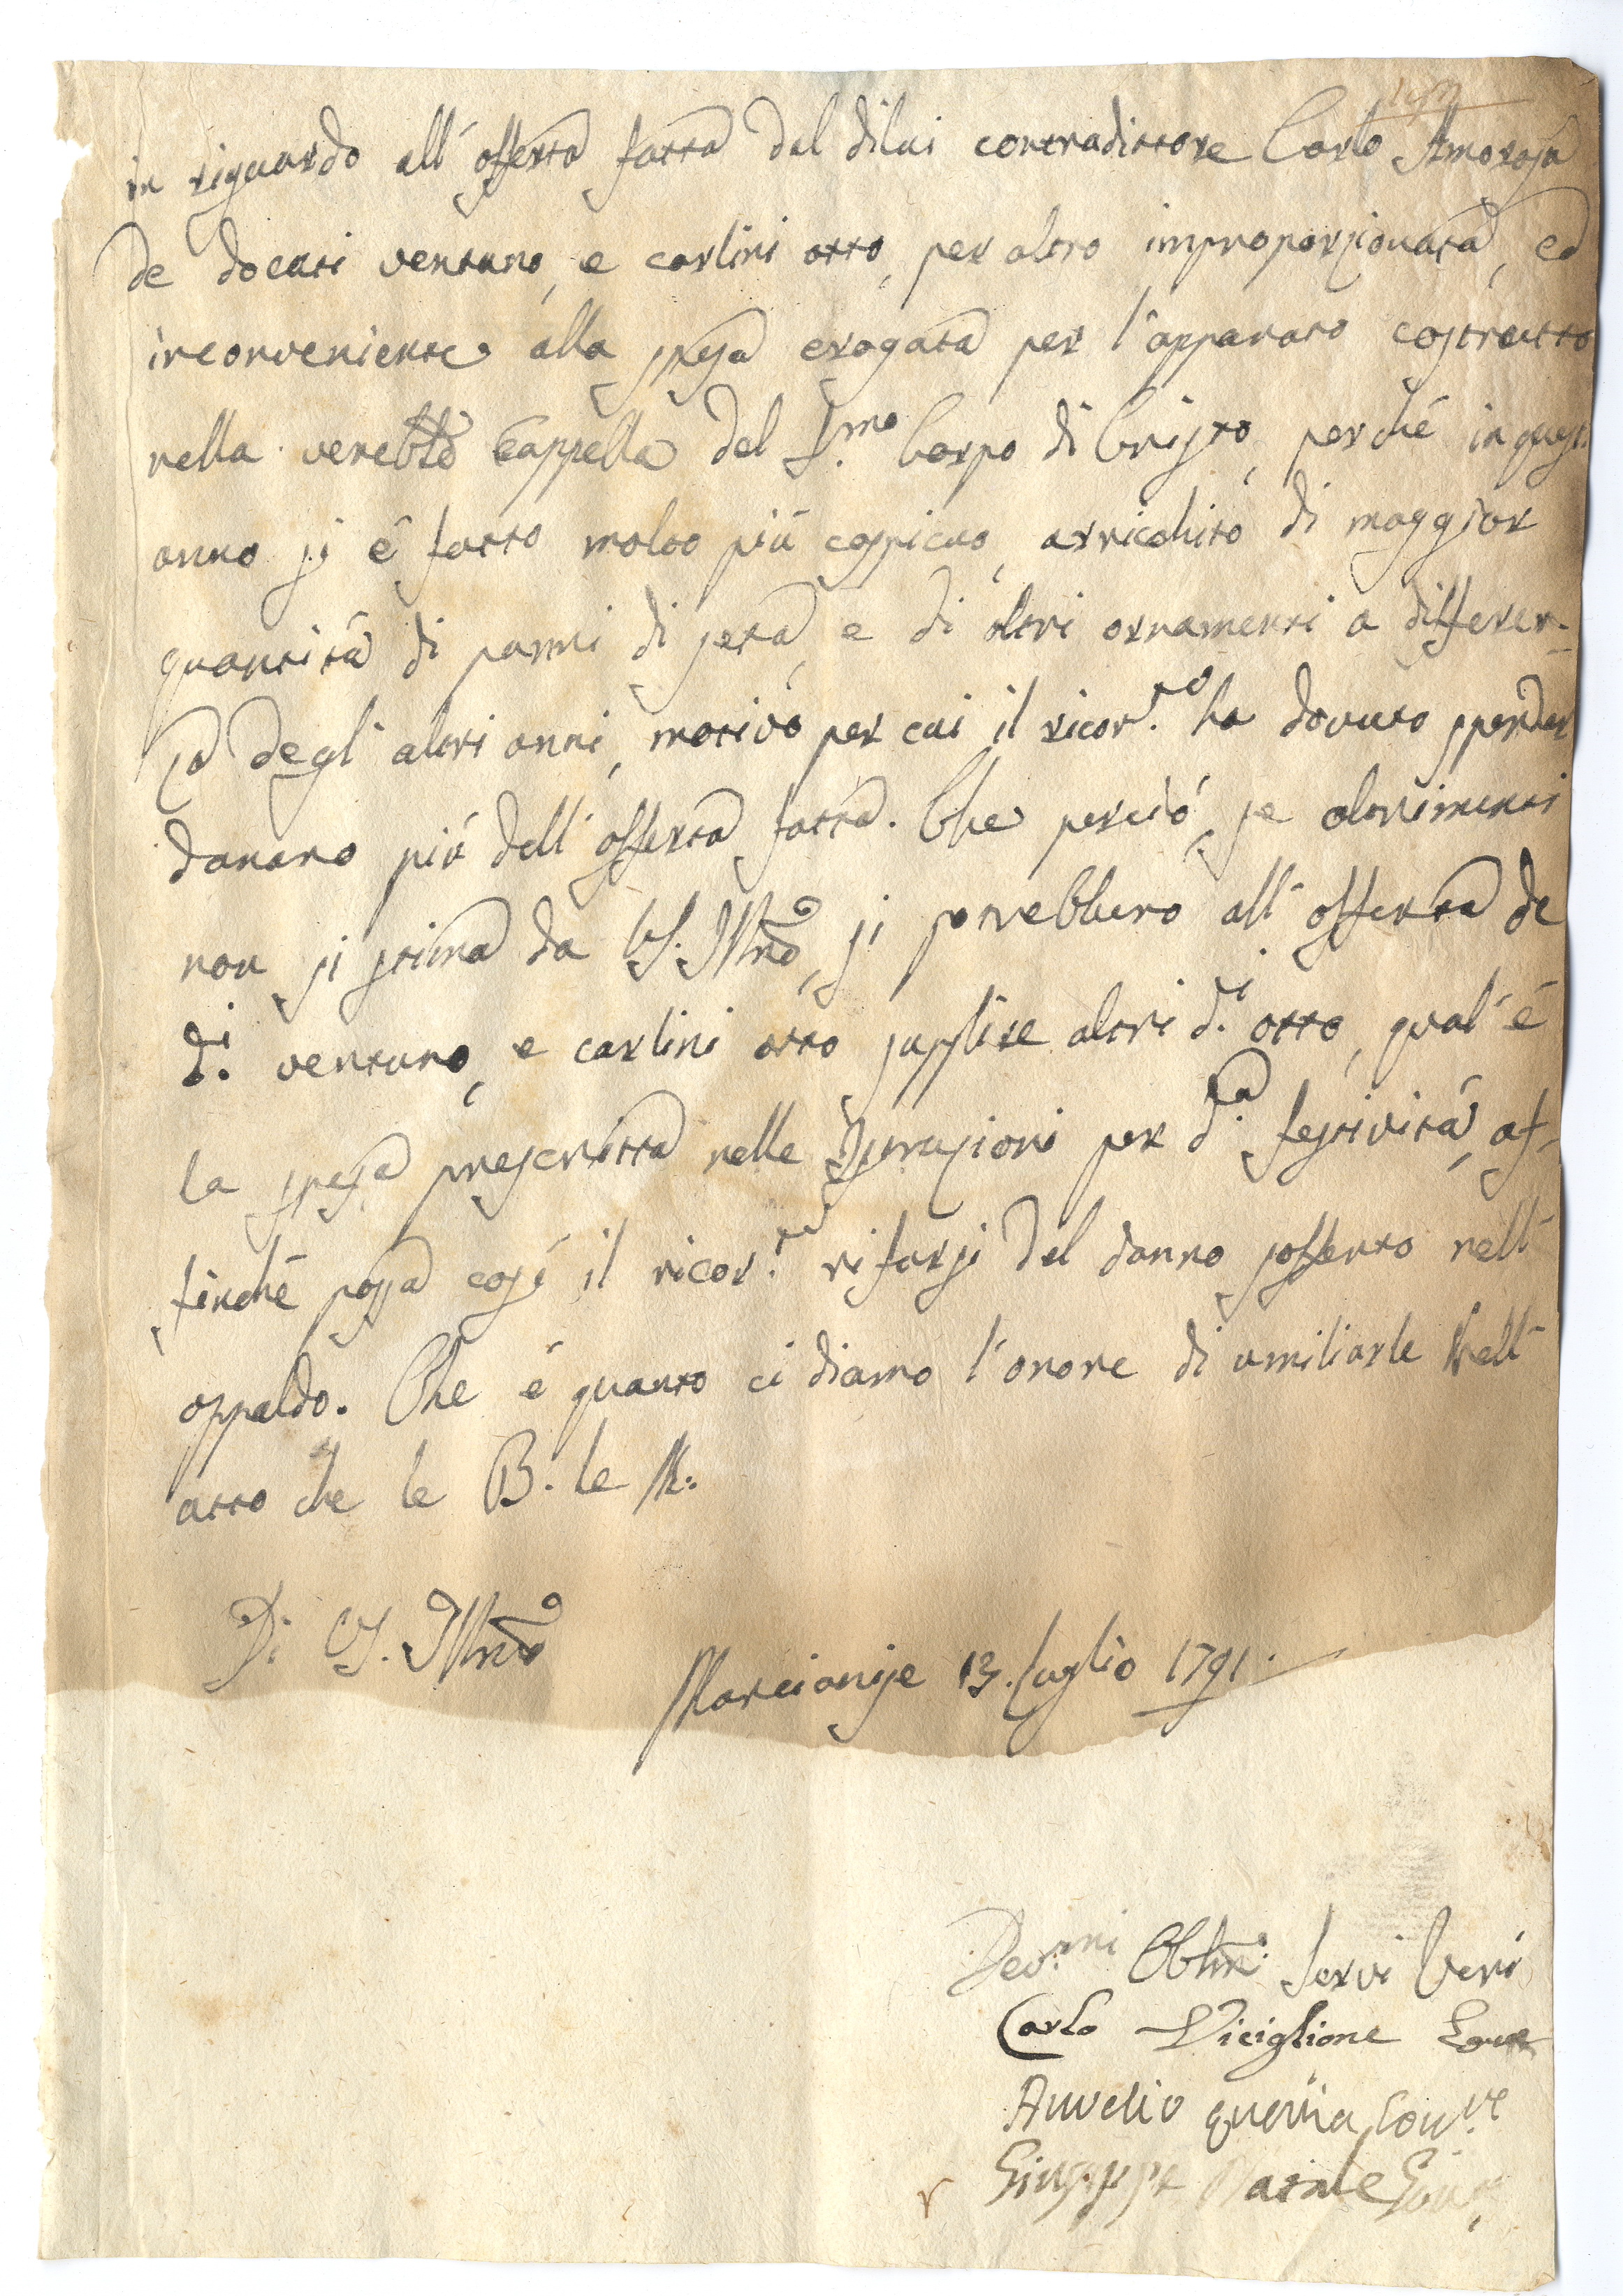 in riguardo all'offerta fatta dal dilui contradittore Carlo Amorosa
de docati ventuno, e carlini otto, per altro improporzionata, ed
inconveniente alla spesa erogata per l'apparato costrutto
nella venebᵉ Cappella del S.ᵐᵒ Corpo di Cristo, perché in quest'
anno si é fatto molto piú cospicuo, arricchito di maggior
quantitá di panni di seta, e di altri ornamenti a differen-
za degl'altri anni, motivo per cui il ricor.ᵗᵉ ha dovuto spender
danaro piú dell'offerta fatta. Che perció, se altrimenti
non si stima da V.S. Illma, si potrebbero all'offerta de
d.ⁱ ventuno, e carlini otto supplire altri d.ⁱ otto, qual'é
la spesa prescritta nelle Istruzioni per d.ᵃ festivitá, af-
finché possa cosí il ricor.ᵗᵉ rifarsi del danno sofferto nell'
appaldo. Che é quanto ci diamo l'onore di umiliarle nell'
atto che le B. le M.
Di V.S. Illma
Marcianise 13. Luglio 1791.
Dev.ᵐⁱ Oblmi Servi Veri
Carlo Viciglione
Aurelio
Giuseppe